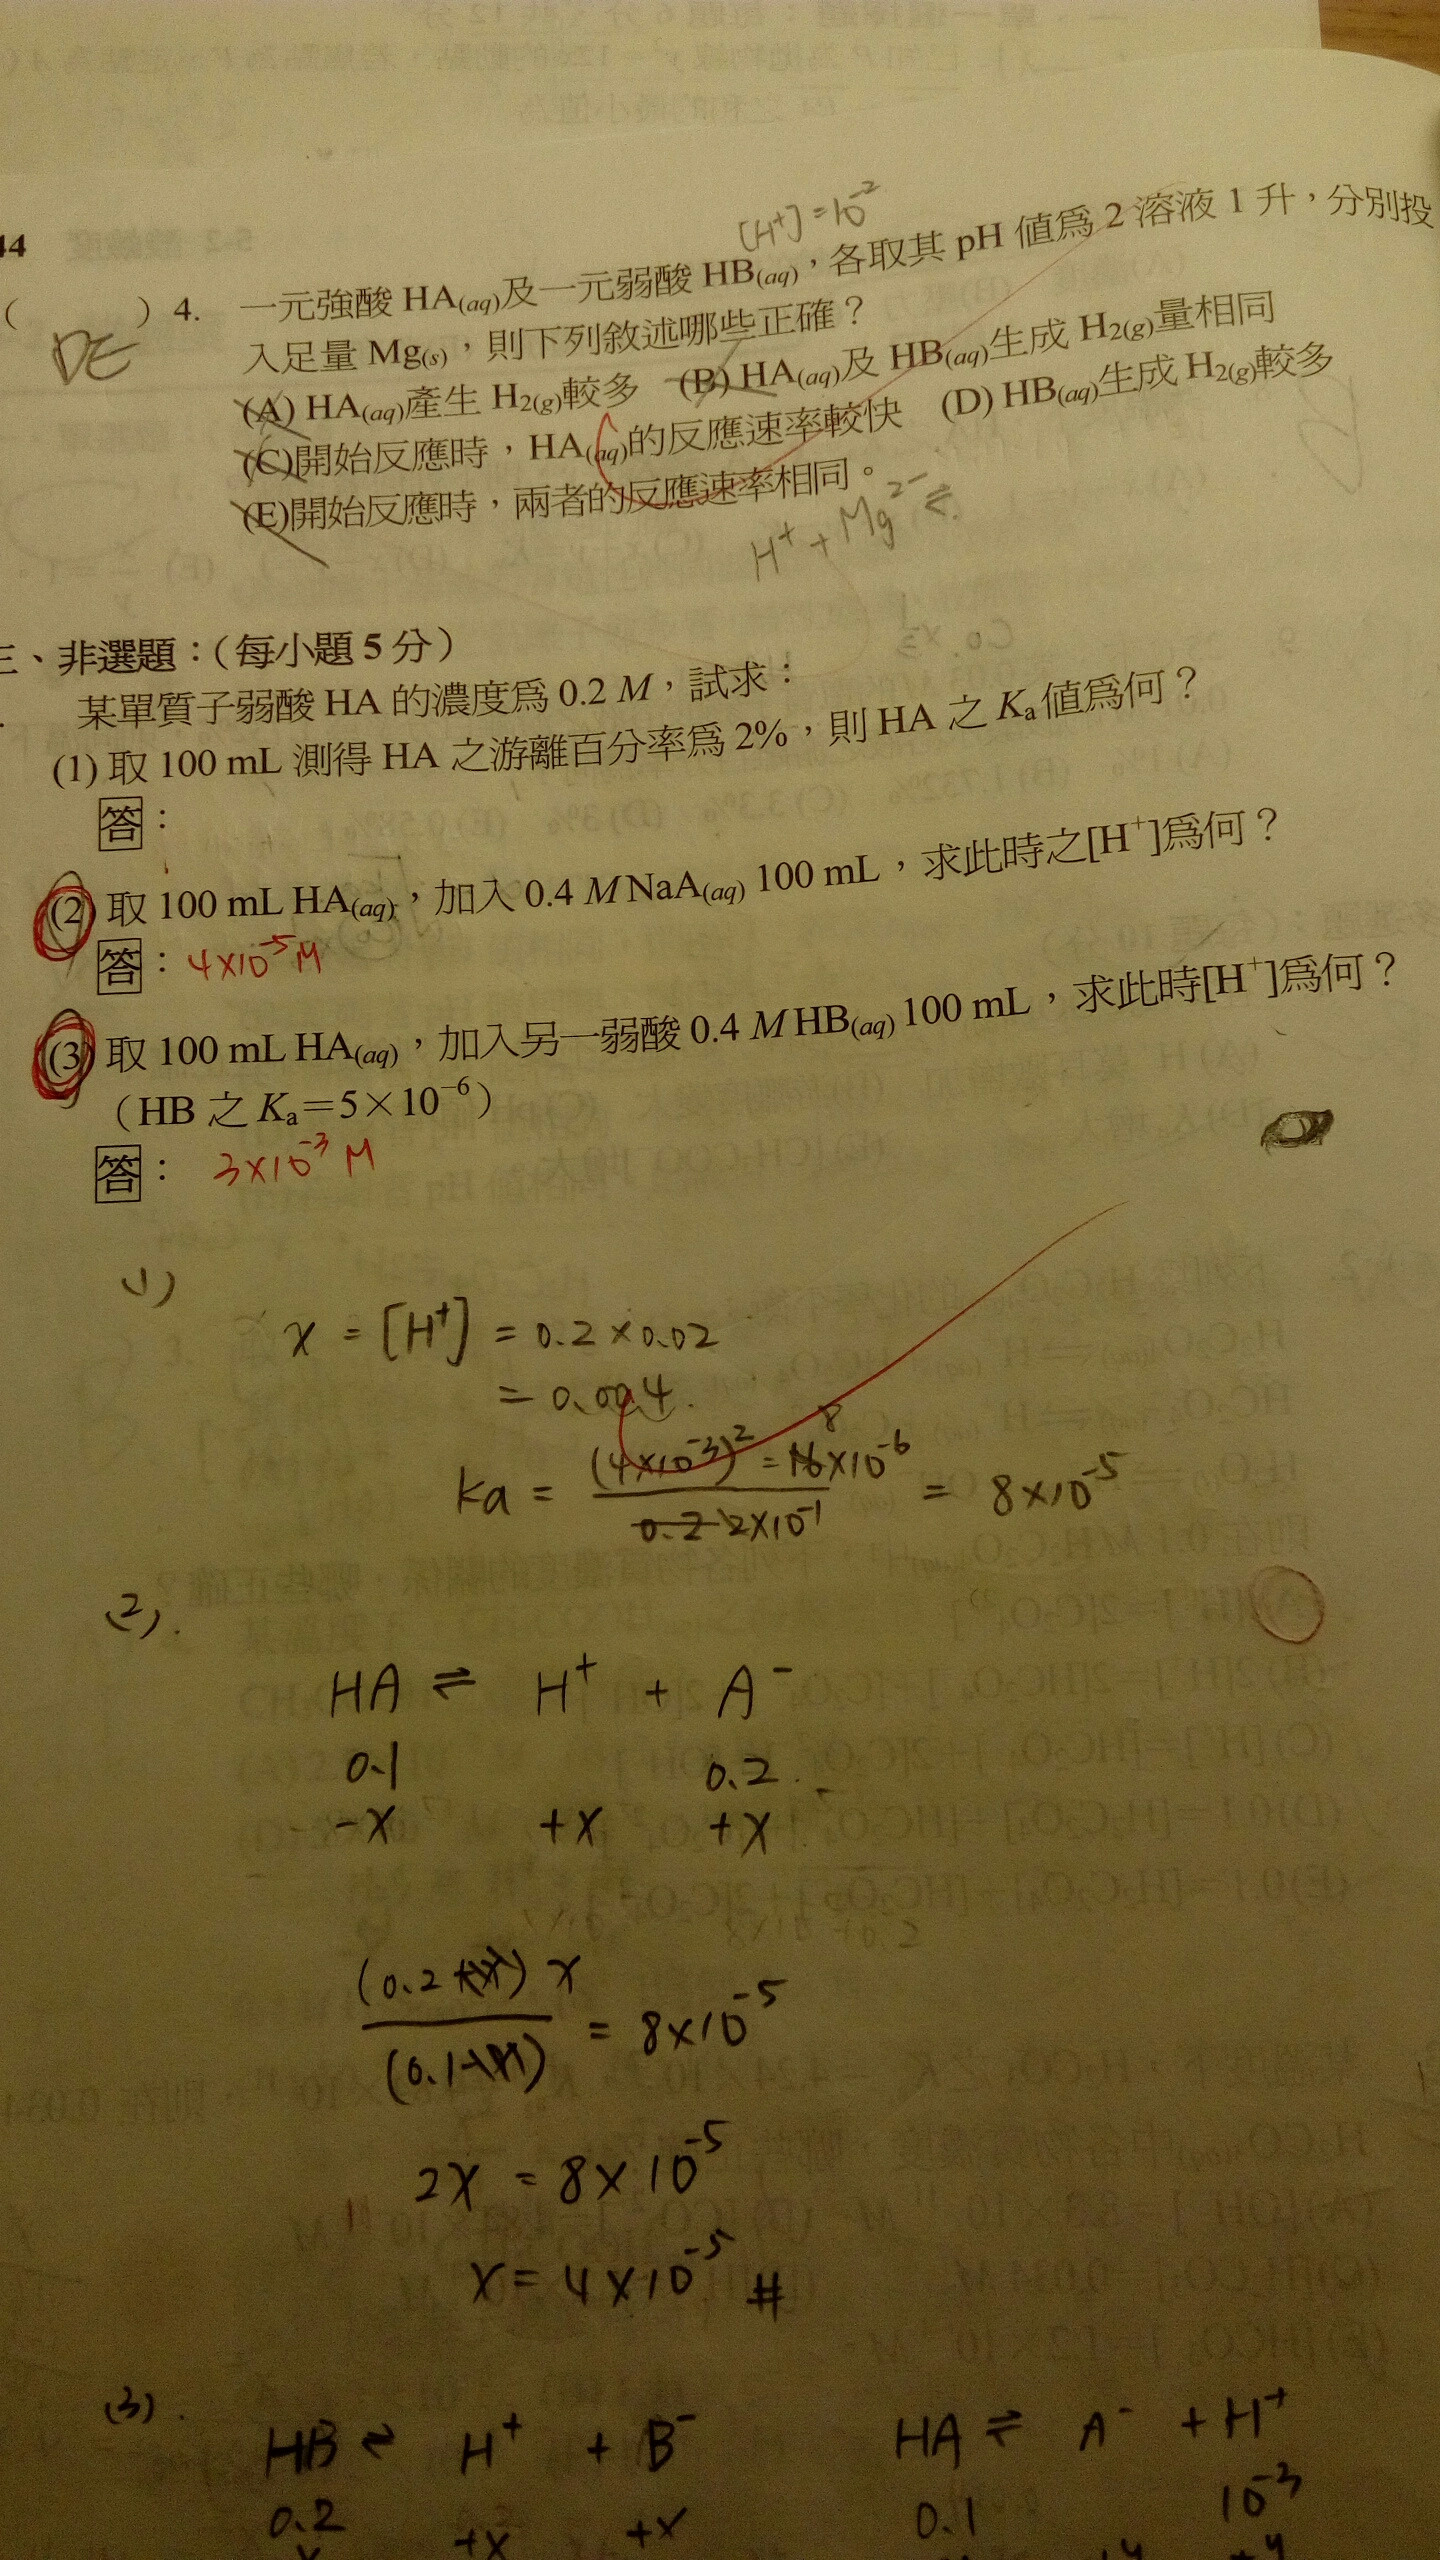 44
[H⁺]=10⁻²
( ) 4. 一元強酸 HA(aq)及一元弱酸 HB(aq)，各取其 pH 值爲 2 溶液 1 升，分別投
DE
入足量 Mg(s)，則下列敘述哪些正確？
(A) HA(aq)產生 H₂(g)較多 (B) HA(aq)及 HB(aq)生成 H₂(g)量相同
(C)開始反應時，HA(aq)的反應速率較快 (D) HB(aq)生成 H₂(g)較多
(E)開始反應時，兩者的反應速率相同。
H⁺ + Mg²⁻ ⇌
三、非選題：（每小題 5 分）
某單質子弱酸 HA 的濃度爲 0.2 M，試求：
(1) 取 100 mL 測得 HA 之游離百分率爲 2%，則 HA 之 Kₐ 值爲何？
答：
(2) 取 100 mL HA(aq)，加入 0.4 M NaA(aq) 100 mL，求此時之[H⁺]爲何？
答：4×10⁻⁵ M
(3) 取 100 mL HA(aq)，加入另一弱酸 0.4 M HB(aq) 100 mL，求此時[H⁺]爲何？
（HB 之 Kₐ＝5×10⁻⁶）
答： 3×10⁻³ M
(1)
x = [H⁺] = 0.2 × 0.02
= 0.004.
8
ka = (4×10⁻³)² = 16×10⁻⁶ / 0.2 2×10⁻¹ = 8×10⁻⁵
(2).
HA ⇌ H⁺ + A⁻
0.1 0.2
-x +x +x
(0.2+x) x / (0.1-x) = 8×10⁻⁵
2x = 8×10⁻⁵
x = 4×10⁻⁵ #
(3).
HB ⇌ H⁺ + B⁻ HA ⇌ A⁻ + H⁺
0.2 +x +x 0.1 10⁻³